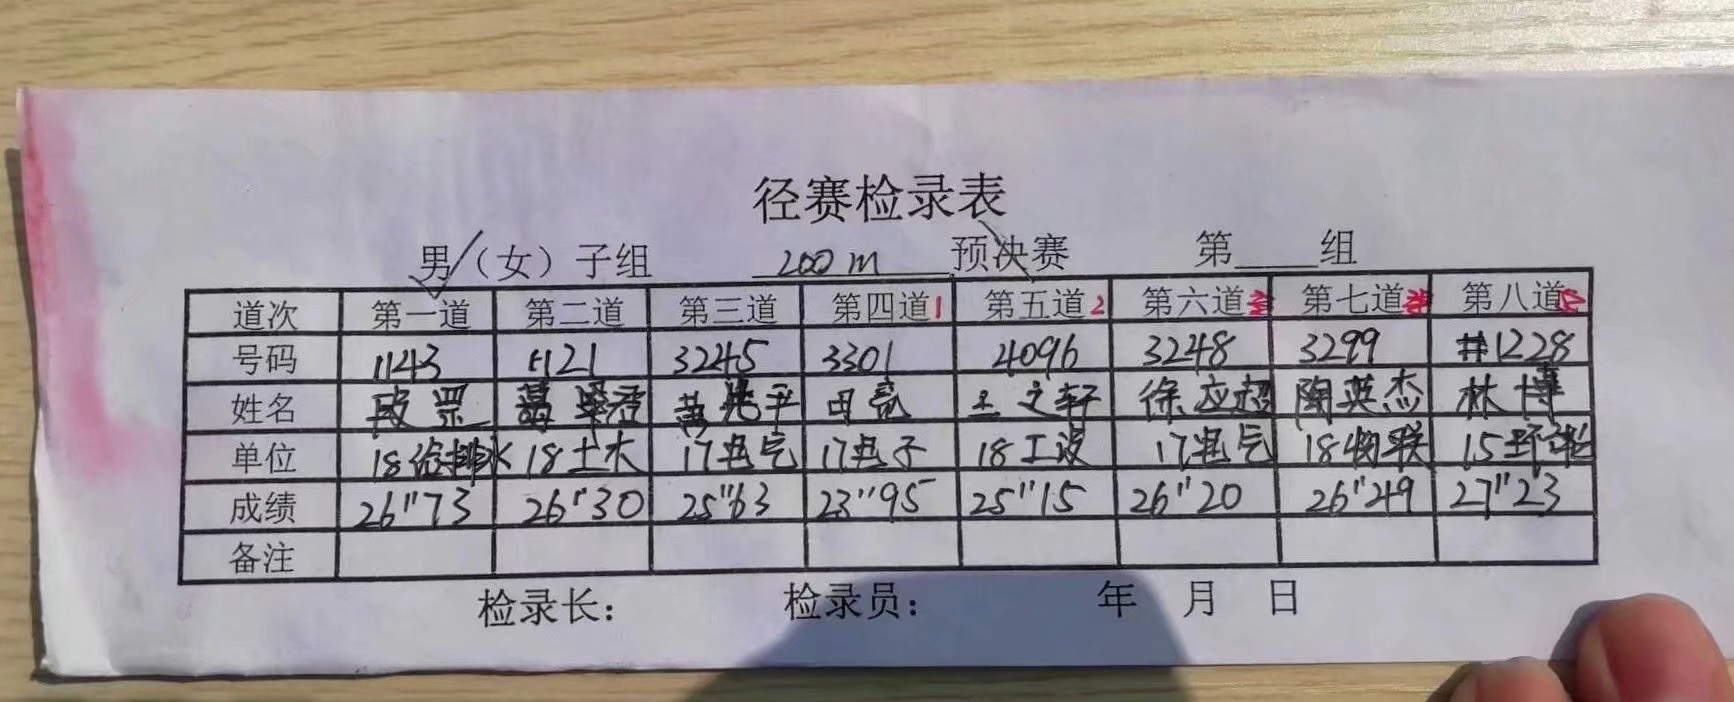 径赛检录表
男（女）子组 200m 预决赛 第____组
道次 第一道 第二道 第三道 第四道1 第五道2 第六道 第七道 第八道
号码 1143 1121 3245 3301 4096 3248 3299 1228
姓名 段 黄兆平 田亮 王文轩 徐应超 陶英杰 林博
单位 18给排水 18土木 17电气 17电子 18工设 17电气 18物联 15环
成绩 26"73 26"30 25"63 23"95 25"15 26"20 26"49 27"23
备注
检录长： 检录员： 年 月 日